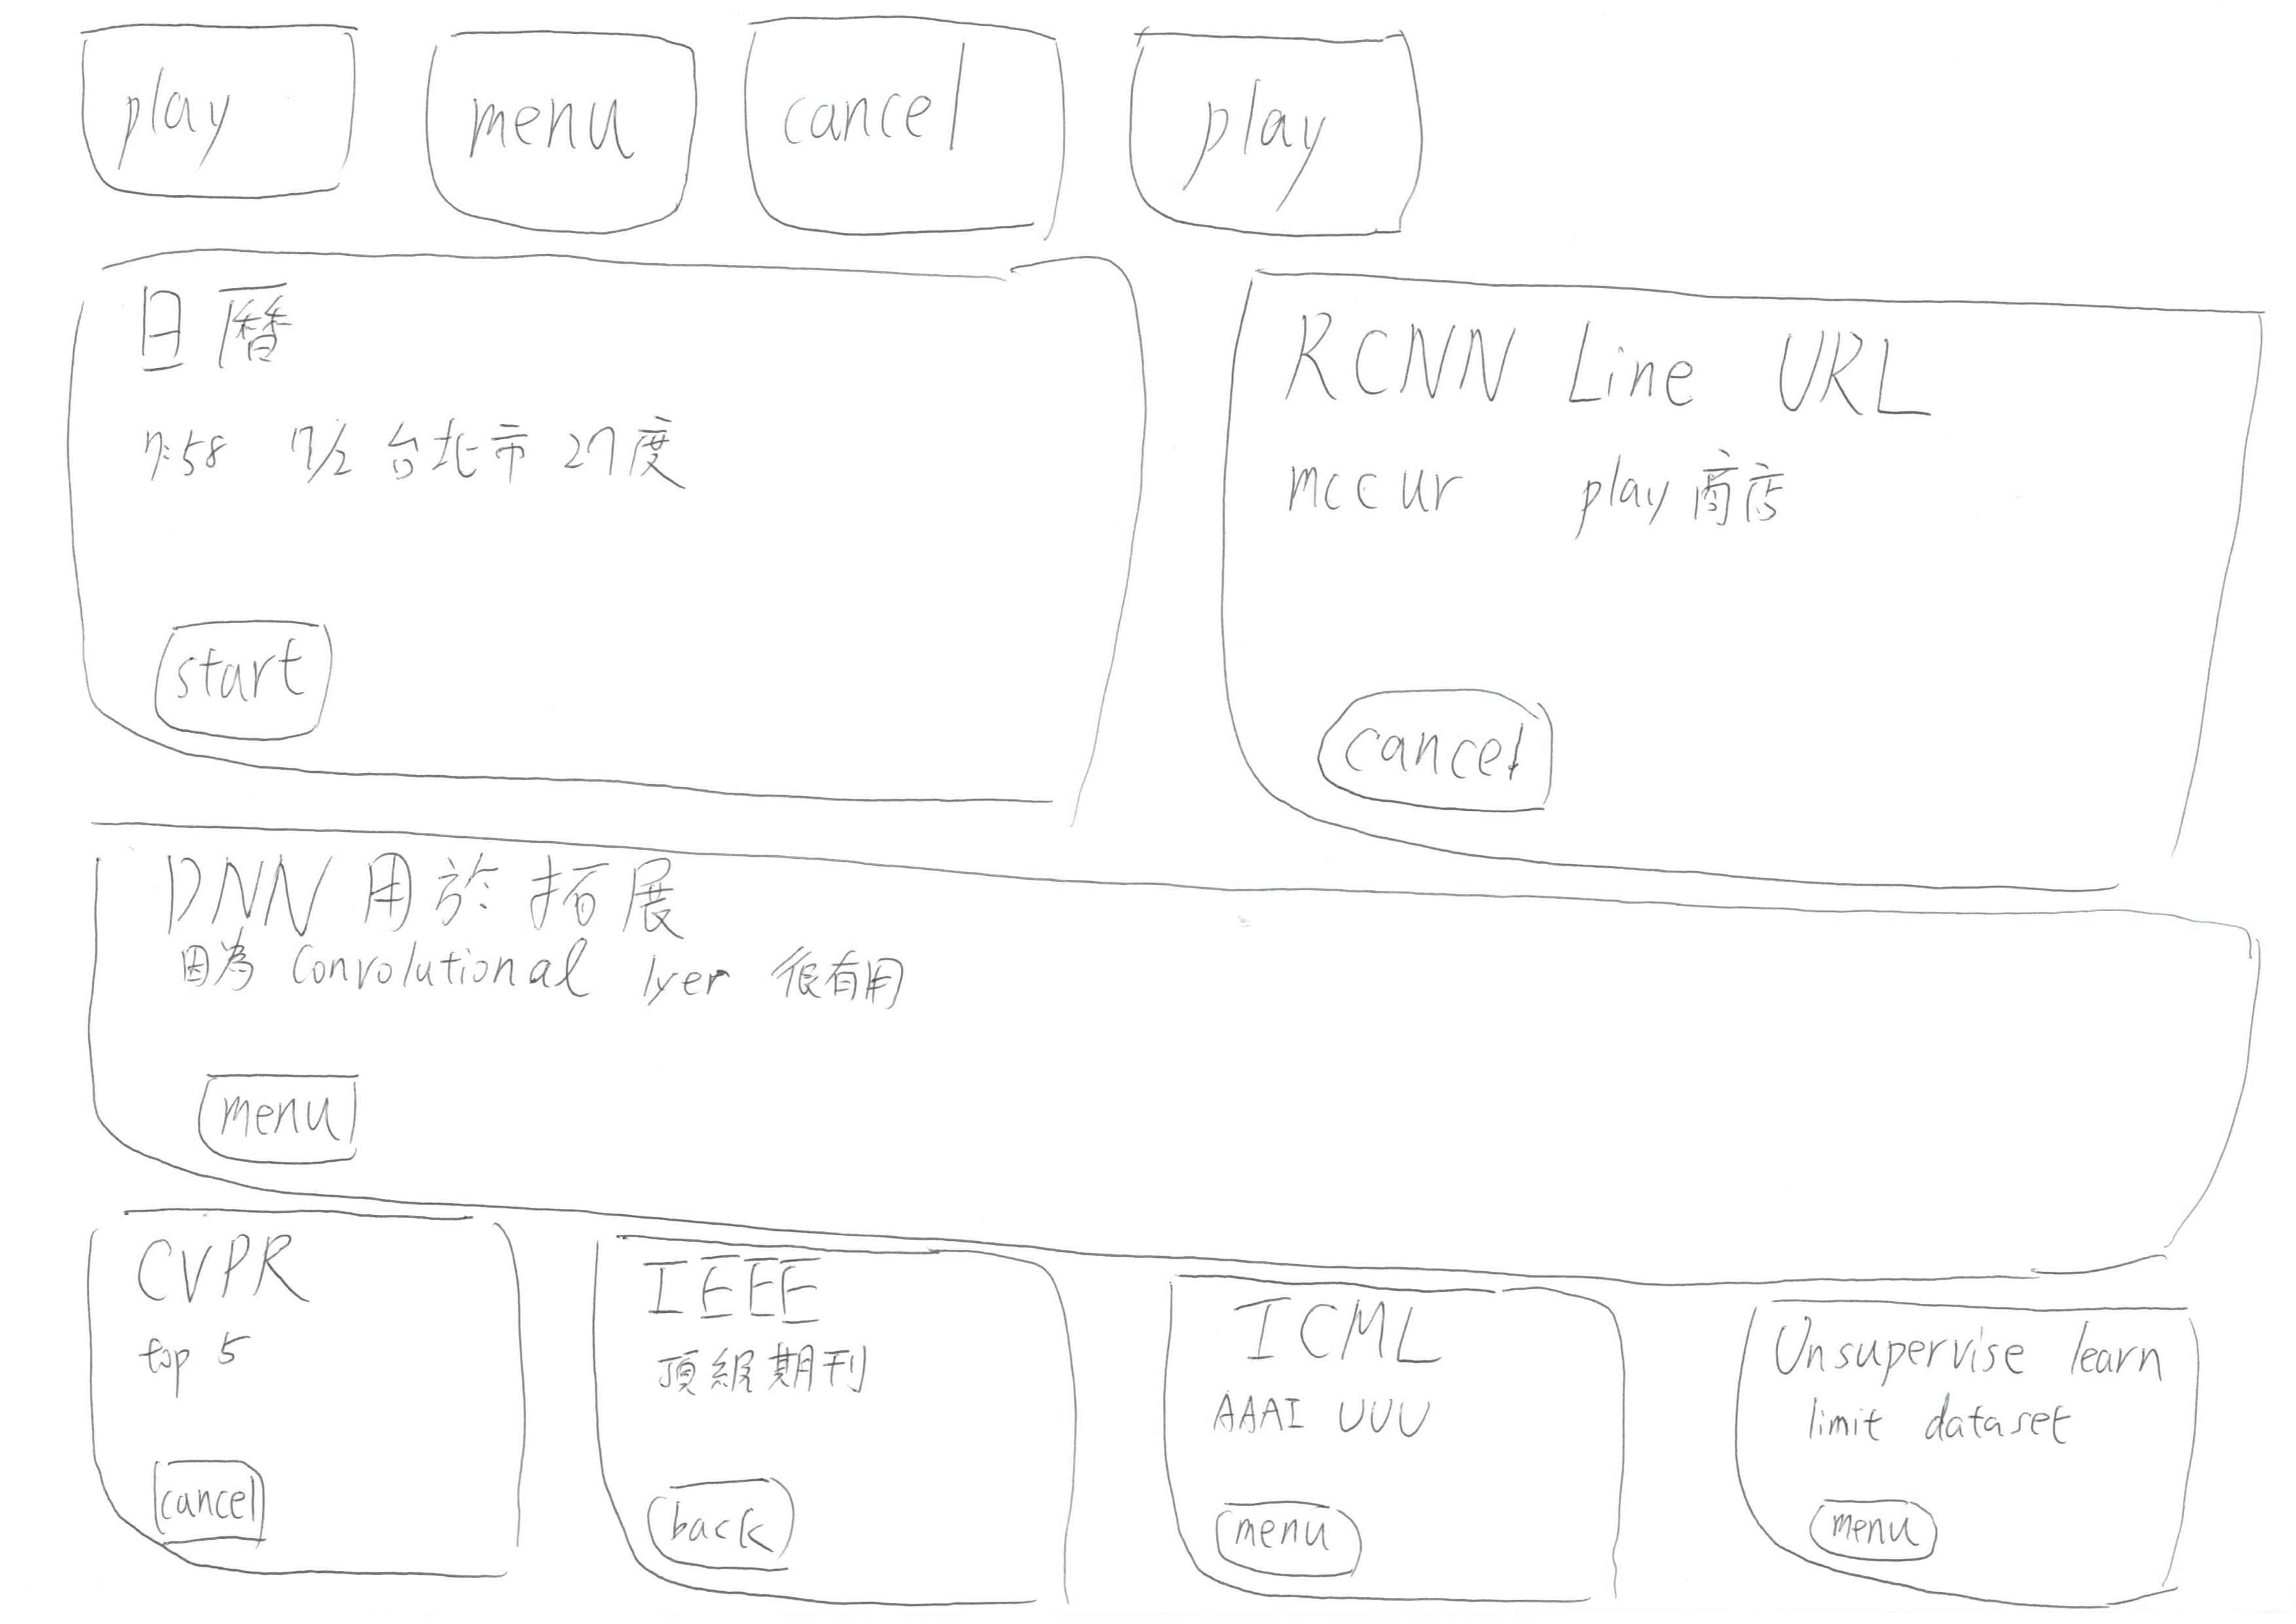 play
menu
cancel
play
日曆
7:58 7/2 台北市 27度
start
RCNN Line URL
mccur play商店
cancel
DNN 用於拓展
因為 Convolutional lyer 很有用
menu
CVPR
top 5
cancel
IEEE
頂級期刊
back
ICML
AAAI UUU
menu
Unsupervise learn
limit dataset
menu